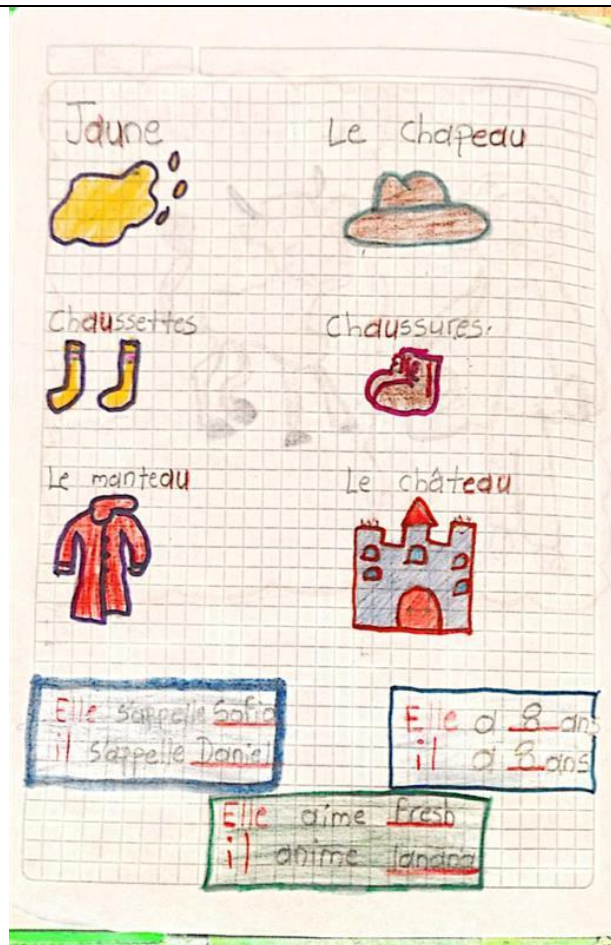 Jaune
Le chapeau
Chaussettes
Chaussures.
Le manteau
Le château
Elle s'appelle Sofia
il s'appelle Daniel
Elle a 8 ans
il a 8 ans
Elle aime
il anime